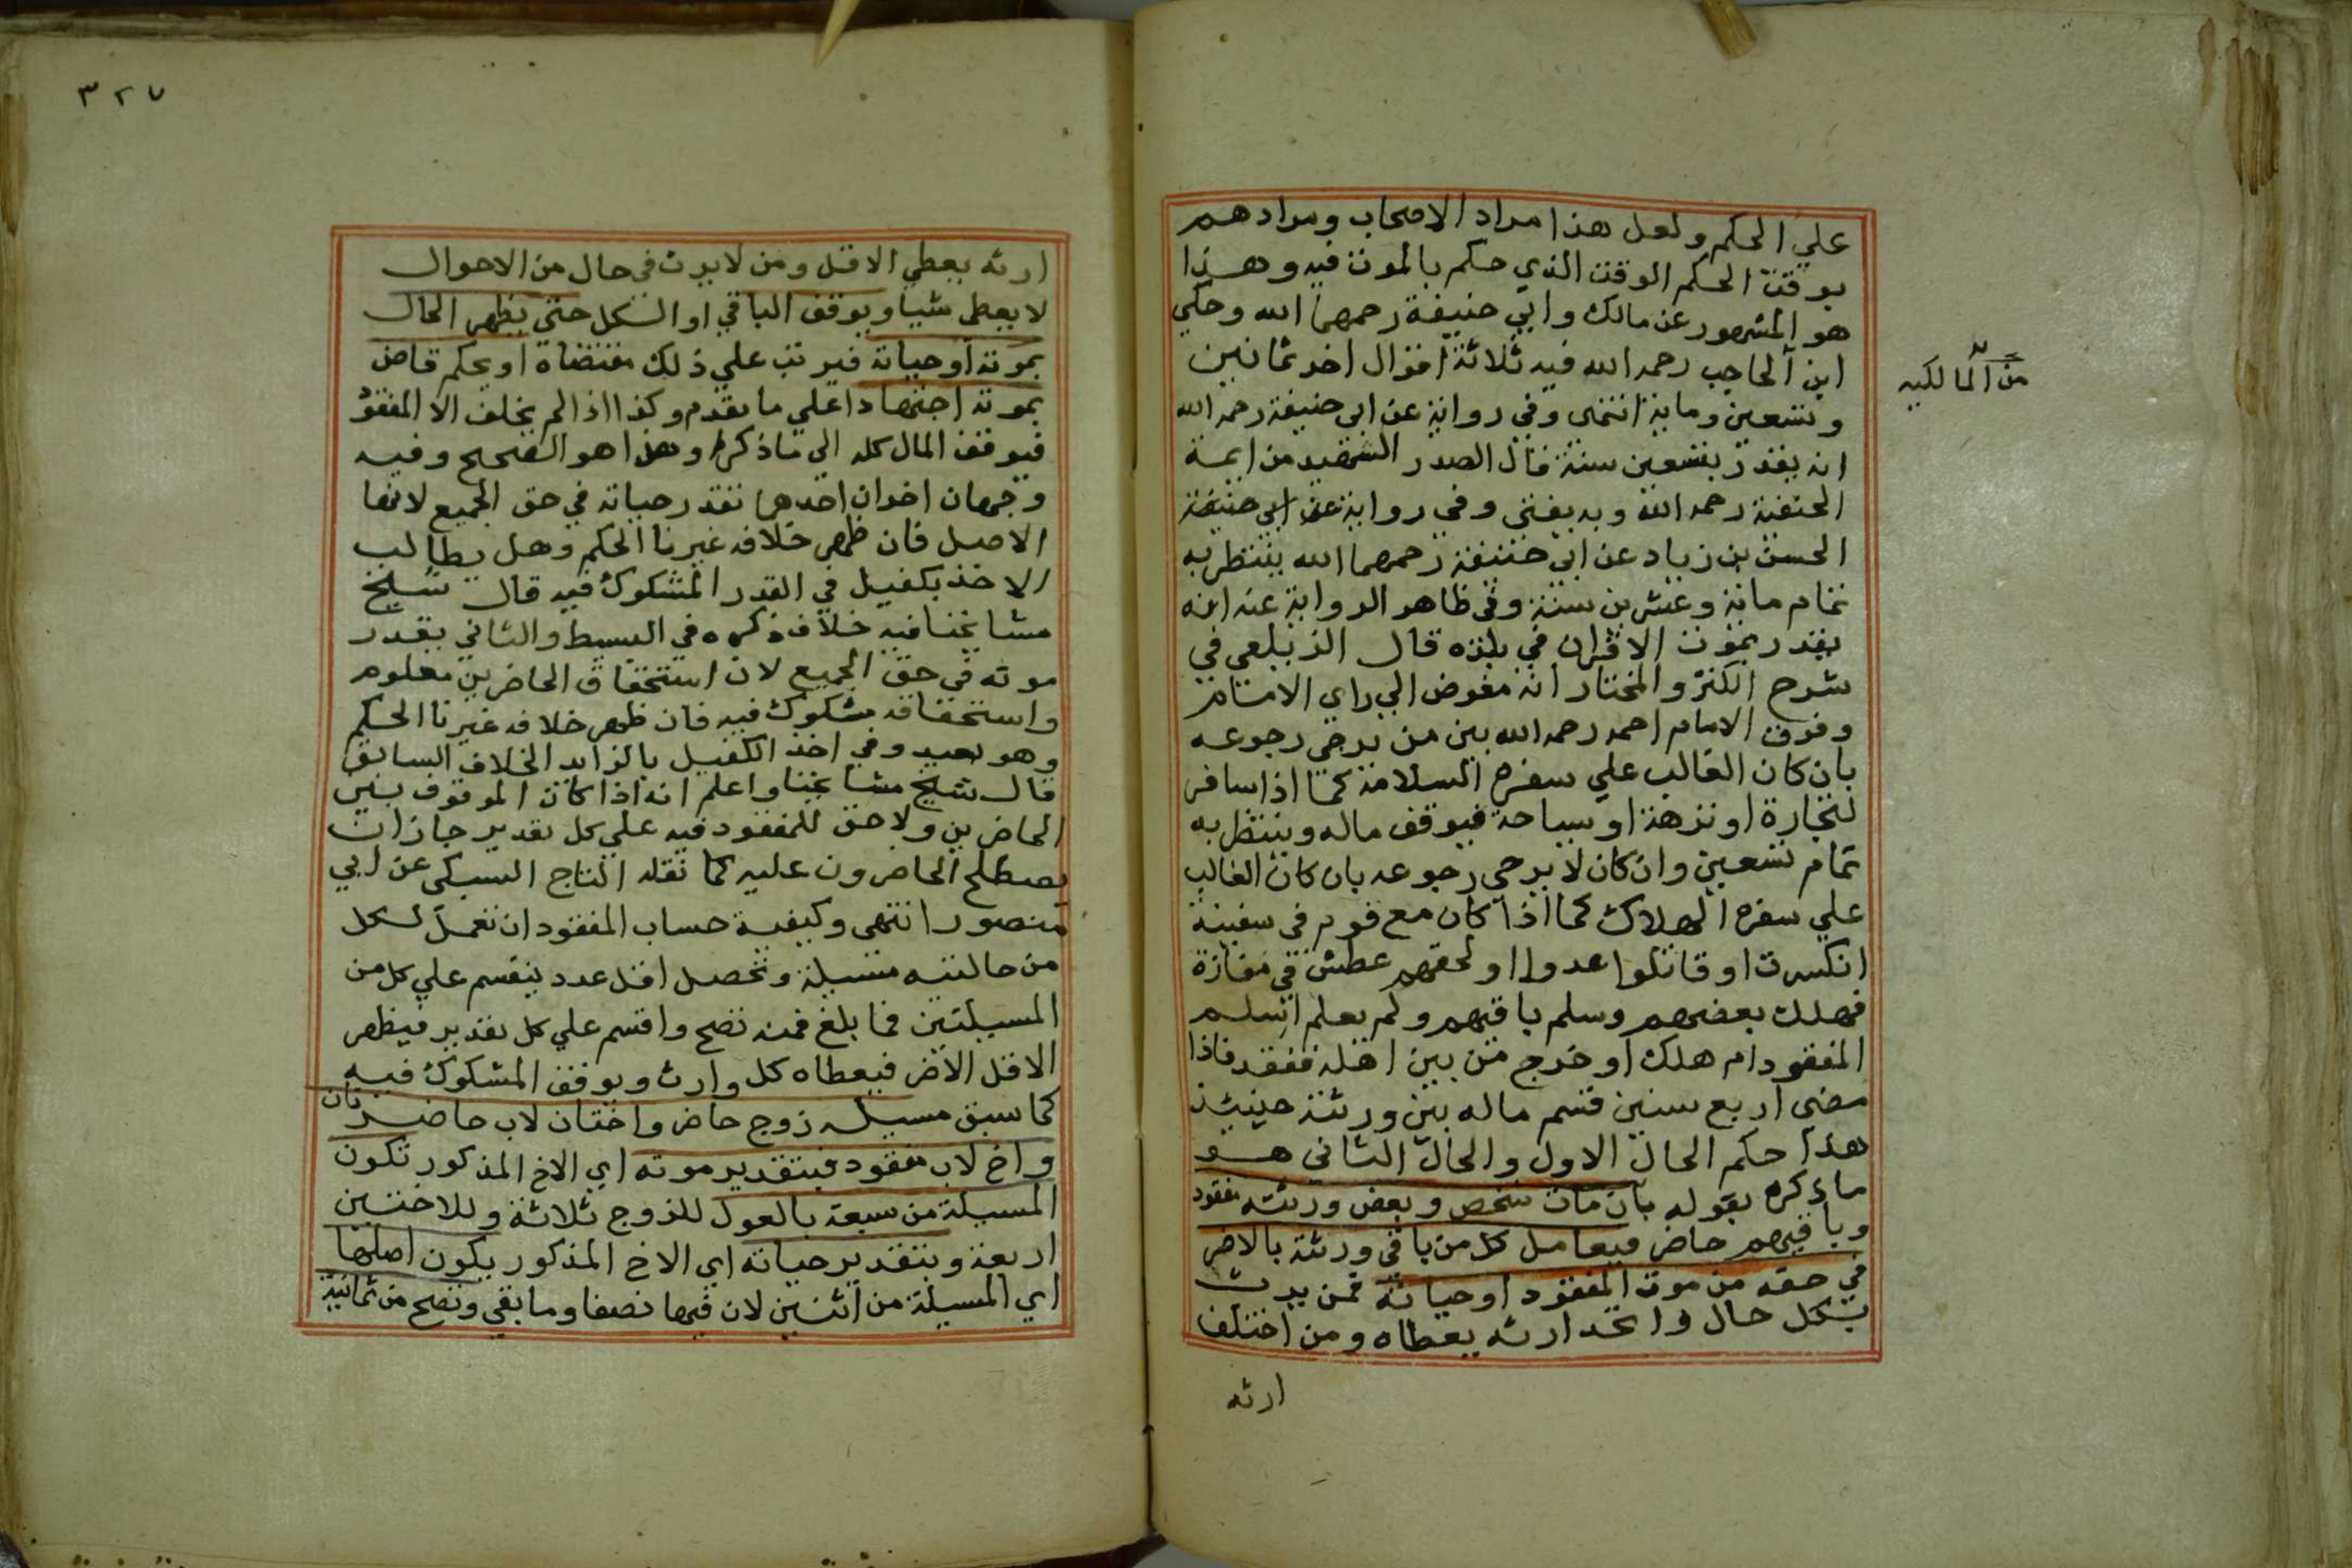 علي الحكم ولعل هذا مراد الاصحاب ومرادهم
بوقت الحكم الوقت الذي حكم بالموت فيه وهذا
هو المشهور عن مالك وابي حنيفة رحمهما الله وحكي
ابن الحاجب رحمه الله فيه ثلاثة اقوال اخر ثمانين
من المالكيه
وتسعين وماية انتهى وفي رواية عن ابي حنيفة رحمه الله
انه يقدر بتسعين سنة قال الصدر الشهيد من ايمة
الحنفية رحمه الله وبه يفتى وفي رواية عن ابي حنيفة
الحسن بن زياد عن ابي حنيفة رحمهما الله ينتظر به
تمام ماية وعشرين سنة وفي ظاهر الرواية عنه انه
يقدر بموت الاقران في بلده قال الزيلعي في
شرح الكنز والمختار انه مفوض الي راي الامام
وفرق الامام احمد رحمه الله بين من يرجى رجوعه
بان كان الغالب علي سفره السلامة كما اذا سافر
لتجارة او نزهة او سياحة فيوقف ماله وينتظر به
تمام تسعين وان كان لا يرجى رجوعه بان كان الغالب
علي سفره الهلاك كما اذا كان مع قوم في سفينة
انكسرت او قاتلوا عدوا او لحقهم عطش في مفازة
فهلك بعضهم وسلم باقيهم ولم يعلم اسلم
المفقود ام هلك او خرج من بين اهله ففقد فاذا
مضي اربع سنين قسم ماله بين ورثته حينيذ
هذا حكم الحال الاول والحال الثاني هو
ماذكره بقوله بان مات شخص وبعض ورثته مفقود
وباقيهم حاضر فيعامل كل من باقي ورثته بالاضر
في حقه من موت المفقود او حياته فمن يرث
بكل حال واتحد ارثه يعطاه ومن اختلف
ارثه
٣٢٧
ارثه يعطي الاقل ومن لا يرث في حال من الاحوال
لا يعطى شيا ويوقف الباقي او الكل حتى يظهر الحال
بموته او حياته فيرتب علي ذلك مقتضاه او يحكم قاض
بموته اجتهادا علي ما تقدم وكذا اذا لم يخلف الا المفقود
فيوقف المال كله الي ما ذكر وهذا هو الصحيح وفيه
وجهان اخران احدهما تقدر حياته في حق الجميع لانها
الاصل فان ظهر خلافه غيرنا الحكم وهل يطالب
الاخذ بكفيل في القدر المشكوك فيه قال شيخ
مشايخنا فيه خلاف ذكره في البسيط والثاني يقدر
موته في حق الجميع لان استحقاق الحاضرين معلوم
واستحقاقه مشكوك فيه فان ظهر خلافه غيرنا الحكم
وهو بعيد وفي اخذ الكفيل بالزايد الخلاف السابق
قال شيخ مشايخنا واعلم انه اذا كان الموقوف بين
الحاضرين ولا حق للمفقود فيه علي كل تقدير جاز ان
يصطلح الحاضرون عليه كما نقله التاج السبكى عن ابي
منصور انتهى وكيفية حساب المفقود ان تعمل لكل
من حالتيه مسيلة وتحصل اقل عدد ينقسم علي كل من
المسيلتين فما بلغ فمنه تصح واقسم علي كل تقدير فيظهر
الاقل الاضر فيعطاه كل وارث ويوقف المشكوك فيه
كما سبق مسيله زوج حاضر واختان لاب حاضرتان
واخ لاب مفقود فبتقدير موته اي الاخ المذكور تكون
المسيلة من سبعة بالعول للزوج ثلاثة وللاختين
اربعة وبتقدير حياته اي الاخ المذكور يكون اصلها
اي المسيلة من اثنين لان فيها نصفا وما بقي وتصح من ثمانية